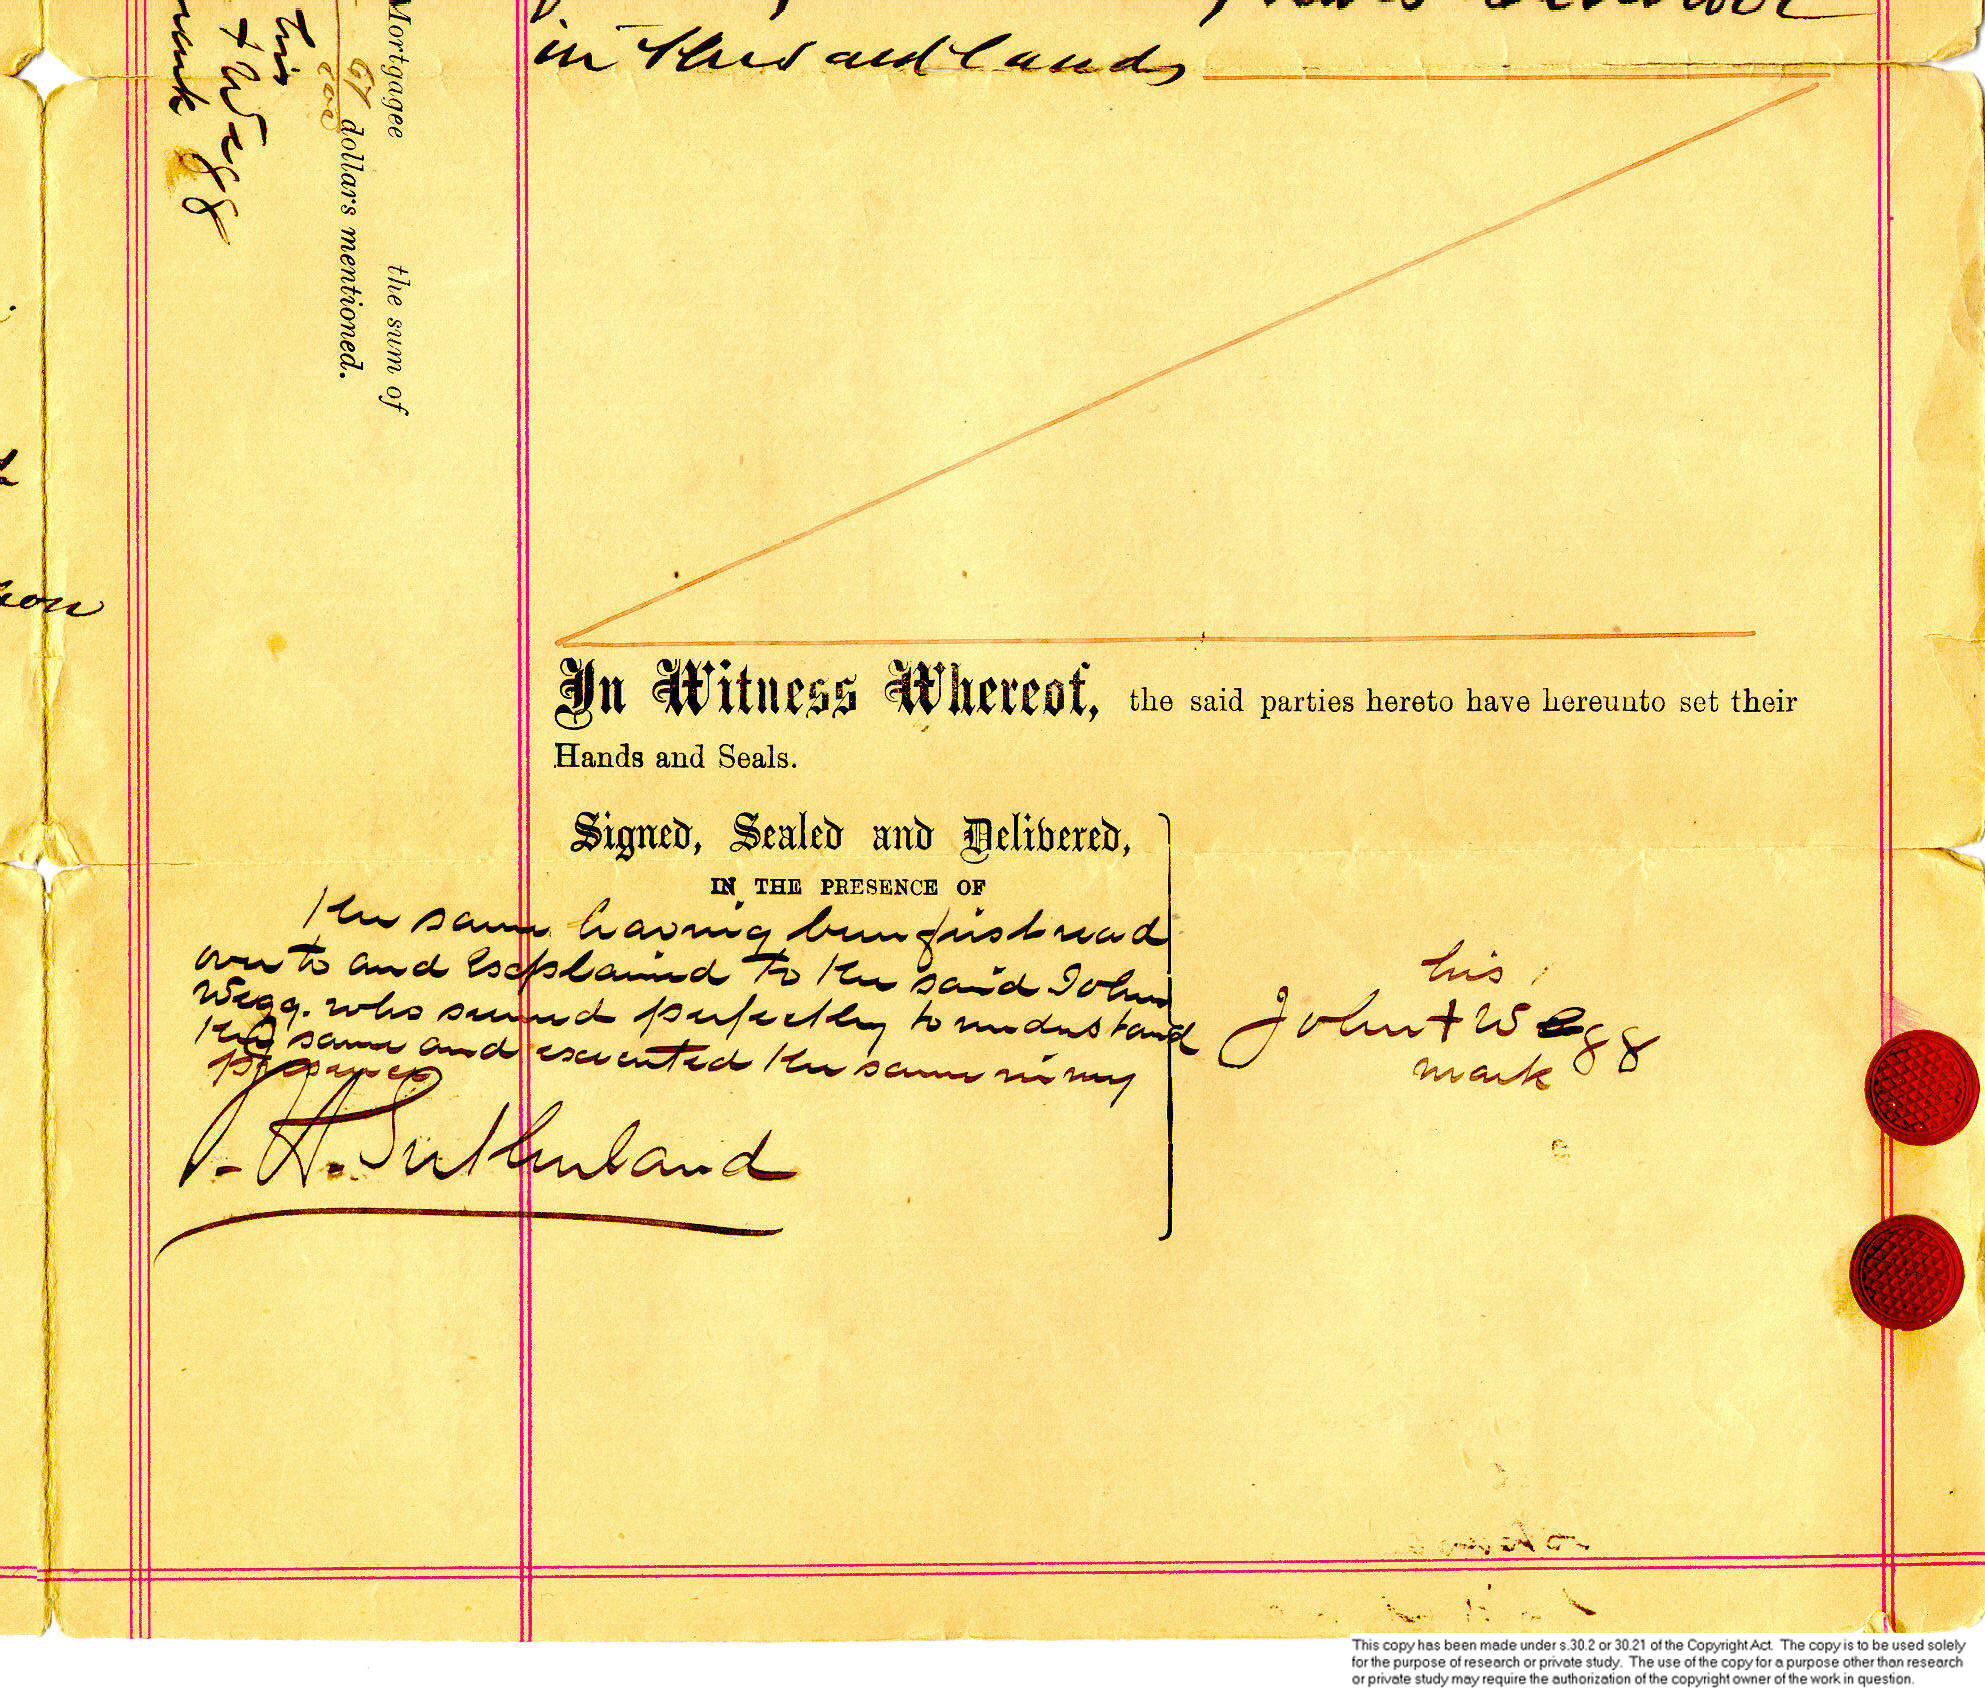 in the said lands
Mortgagee the sum of
dollars mentioned.
his
+ Wegg
mark
In Witness Whereof, the said parties hereto have hereunto set their
Hands and Seals.
Signed, Sealed and Delivered,
IN THE PRESENCE OF
the same having been first read
over to and explained to the said John
Wegg. who seemed perfectly to understand
the same and executed the same in my
presence
H. Sutherland
his
John + Wegg
mark
This copy has been made under s.30.2 or 30.21 of the Copyright Act. The copy is to be used solely
for the purpose of research or private study. The use of the copy for a purpose other than research
or private study may require the authorization of the copyright owner of the work in question.